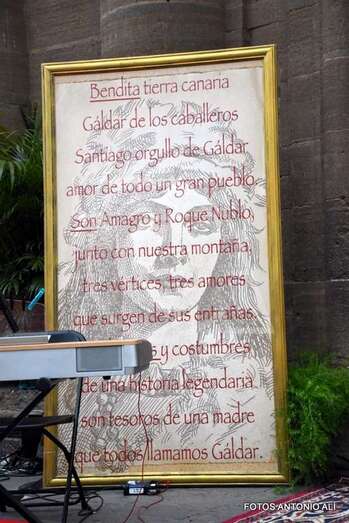 Bendita tierra canaria
Gáldar de los caballeros
Santiago orgullo de Gáldar
amor de todo un gran pueblo.
Son Amagro y Roque Nublo,
junto con nuestra montaña,
tres vértices, tres amores
que surgen de sus entrañas.
y costumbres
de una historia legendaria
son tesoros de una madre
que todos llamamos Gáldar.
FOTOS ANTONIO ALÍ